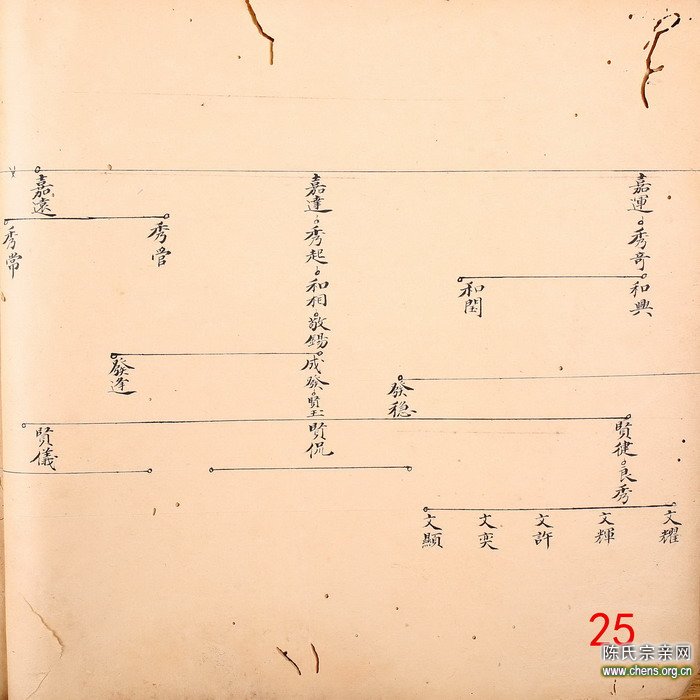 嘉運
秀奇
和興
和閏
嘉達
秀起
和相
敬錫
成發
賢玉
發逢
發穩
嘉遠
秀管
秀常
賢健
良秀
賢侃
賢儀
文耀
文輝
文許
文奕
文顯
25
陈氏宗亲网
www.chens.org.cn